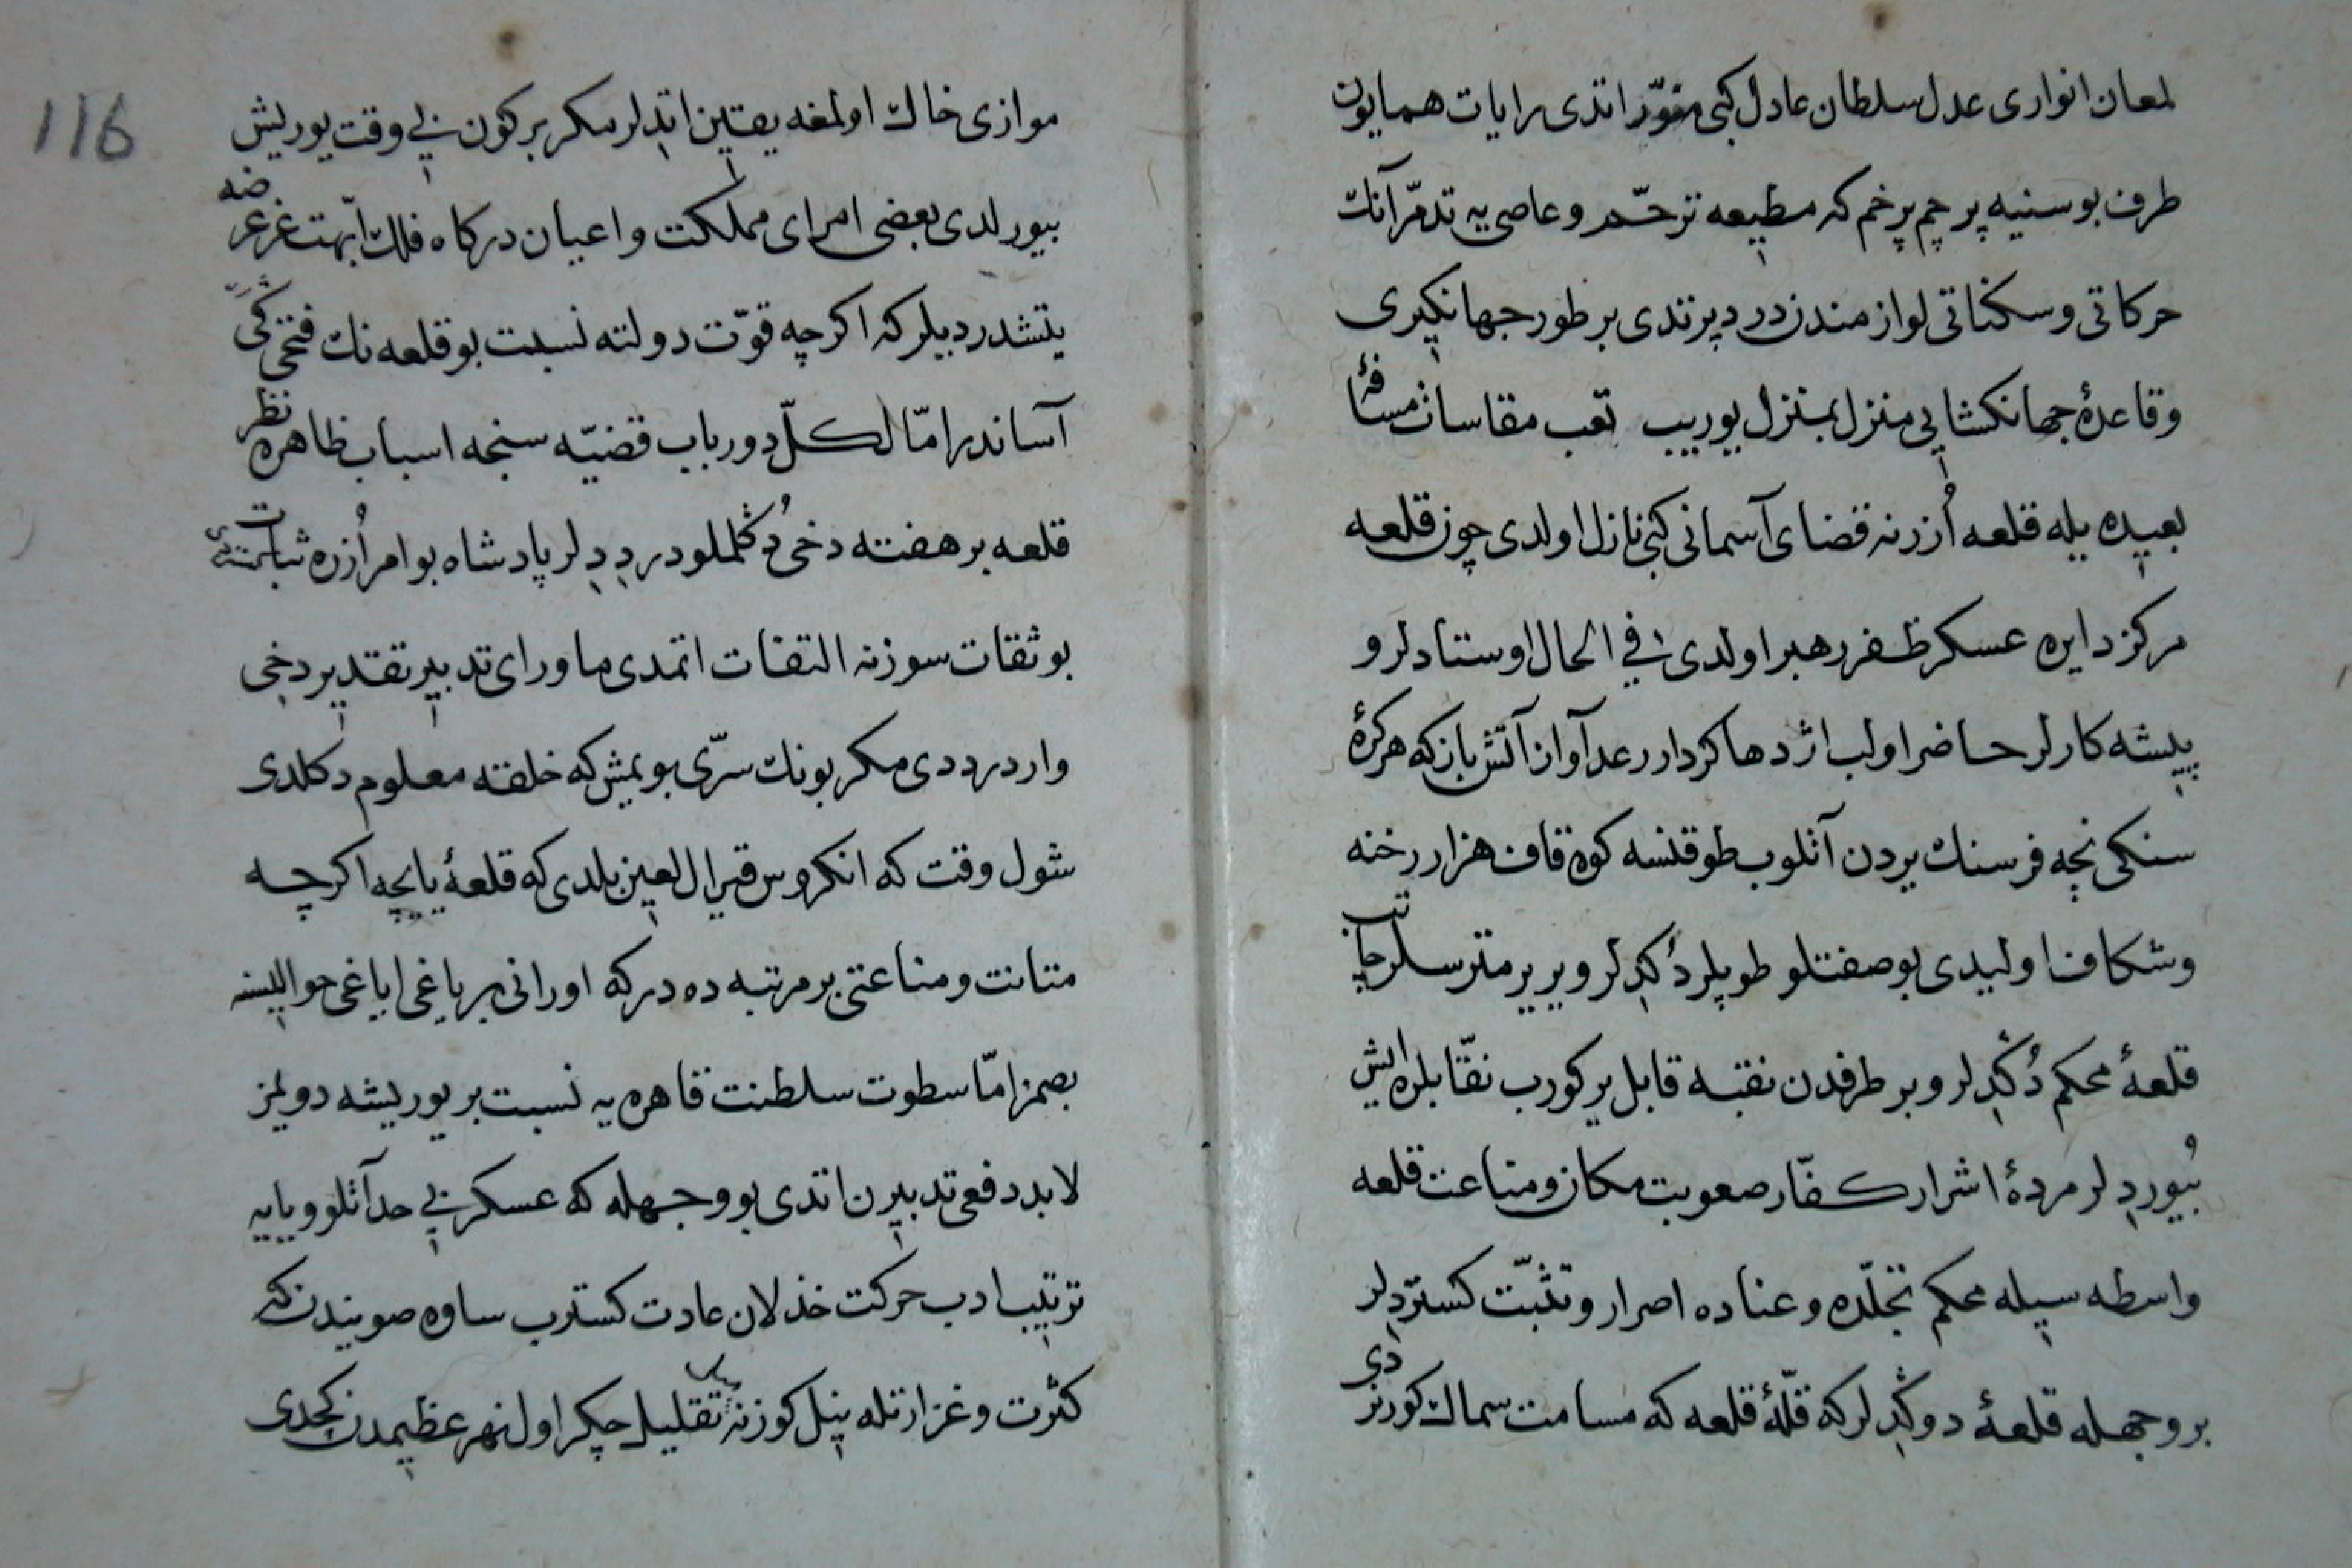 لمعان انواری عدل سلطان عادل کبی منوّر اتدی رایات همایون
طرف بوسنیه پر چم پر خم که مطیعه ترحّم و عاصی یه تدمّر آنك
حرکاتی و سکناتی لوازمندن در دپرتدی بر طور جهانکیری
وقاعدۀ جهانکشایی منزل بمنزل یوریب تعب مقاسات مسافۀ
بعیده یله قلعه اُزرنه قضای آسمانی کبی نازل اولدی چون قلعه
مرکز دایره عسکر ظفر رهبر اولدی فی الحال اوستادلر و
پیشه کارلر حاضر اولب اژدها کردار رعد آواز آتش باز که هر کرۀ
سنکی نچه فرسنك یردن آتلوب طوقنسه کوه قاف هزار رخنه
وشکاف اولیدی بو صفتلو طوپلر دُکدلر و یر یر مترسلر چاتب
قلعۀ محکم دُکدلر و بر طرفدن نقبه قابل یر کورب نقّابلره ایش
بُیوردلر مردۀ اشرار کفّار صعوبت مکان و مناعت قلعه
واسطه سیله محکم تجلّده و عناده اصرار و تثبّت کستردلر
بر وجهله قلعۀ دوکدلر که قلّۀ قلعه که مسامت سماك کورنردی
116
موازی خاك اولمغه یقین اتدلر مکر بر کون نی وقت یوریش
بیورلدی بعضی امرای مملکت و اعیان درکاه فلك ابّهت غز عرضه
یتشدردیلر که اکرچه قوّت دولته نسبت بو قلعه نك فتحی
آساندر امّا لکلّ دور باب قضیّه سنجه اسباب ظاهره نظر
قلعه بر هفته دخی دُکلملودر ددلر پادشاه بو امر اُزره ثبات
بو ثقات سوزنه التفات اتمدی ماورای تدبیر تقدیر دخی
واردر ددی مکر بونك سرّی بویمش که خلقه معلوم دکلدی
شول وقت که انکروس قیرال لعین بلدی که قلعۀ یایچه اکرچه
متانت و مناعتی بر مرتبه ده در که اورانی بر یاغی ایاغی حوالیسنه
بصمز امّا سطوت سلطنت قاهره یه نسبت بر یوریشه دویمز
لابد دفعی تدبیرن اتدی بو وجهله که عسکر بی حد آتلو و یایه
ترتیب ادب حرکت خذلان عادت کسترب ساوه صویندن که
کثرت و غزارتله نیل کوزنه تقلیل چکر اول نهر عظیمدن کچدی